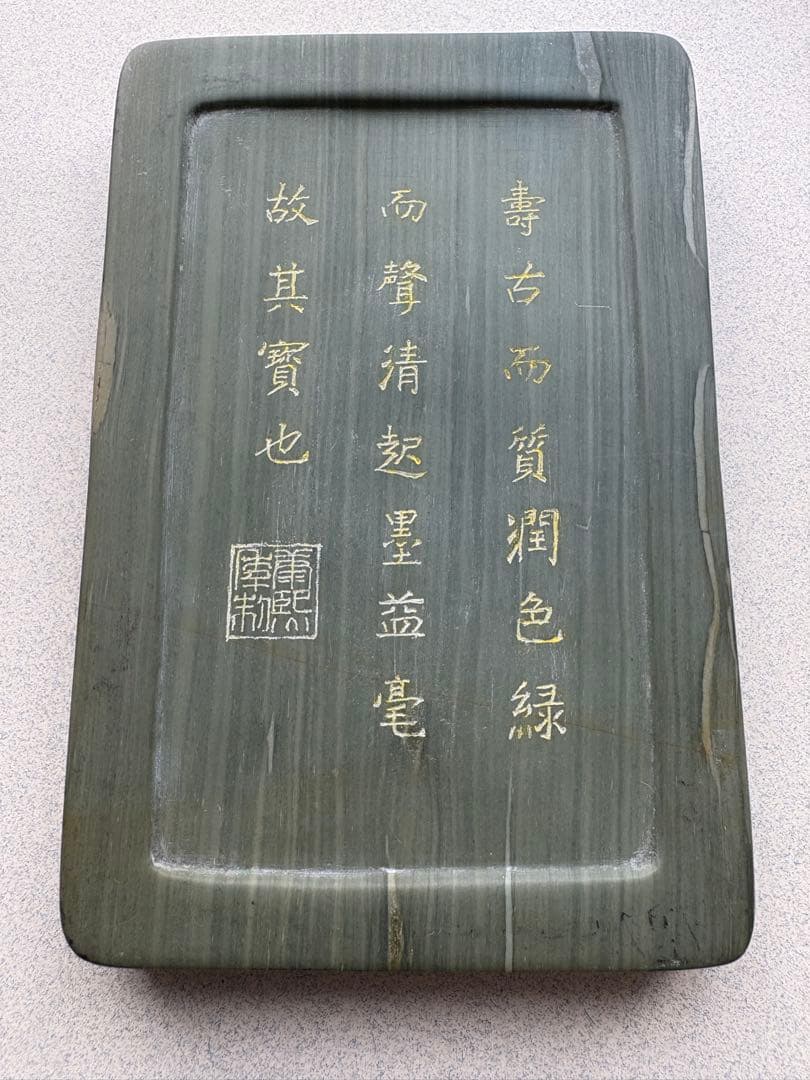 壽古而質潤色緑
而聲清起墨益毫
故其寳也
康熙
宸制